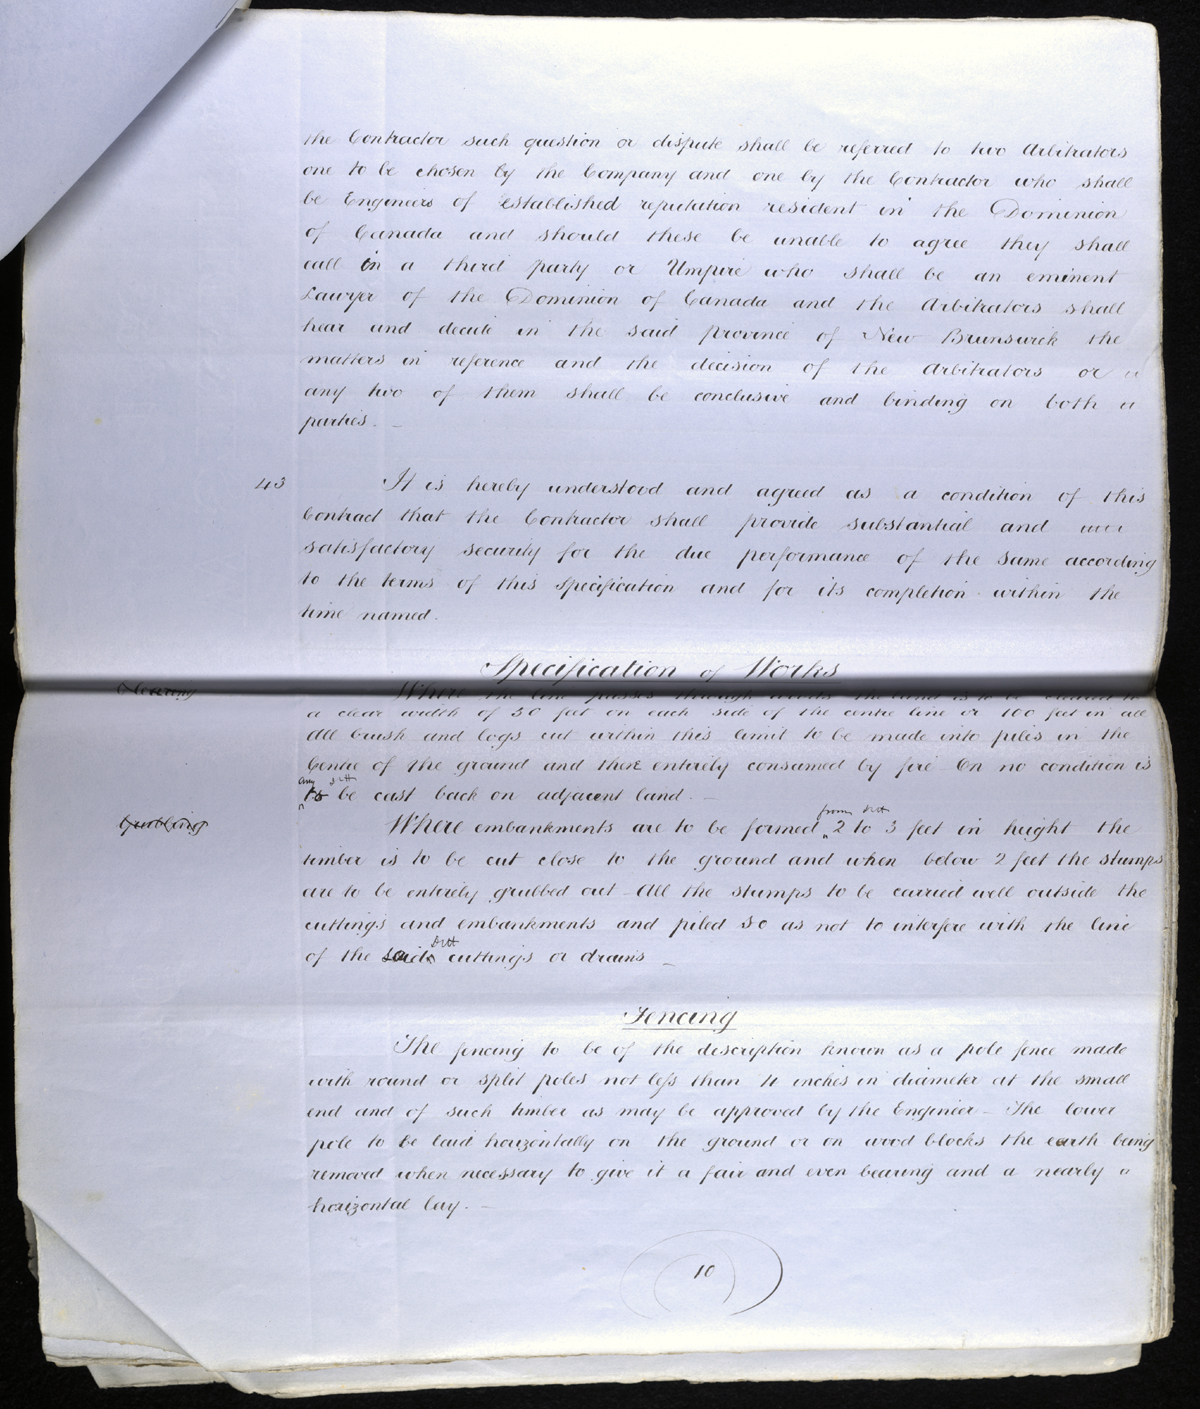 the Contractor such question or dispute shall be referred to two Arbitrators
one to be chosen by the Company and one by the Contractor who shall
be Engineers of established reputation resident in the Dominion
of Canada and should these be unable to agree they shall
call in a third party or Umpire who shall be an eminent
Lawyer of the Dominion of Canada and the Arbitrators shall
hear and decide in the said province of New Brunswick the
matters in reference and the decision of the Arbitrators or
any two of them shall be conclusive and binding on both
parties. –
43 It is hereby understood and agreed as a condition of this
Contract that the Contractor shall provide substantial and
satisfactory security for the due performance of the same according
to the terms of this Specification and for its completion within the
time named.
Specification of Works
Clearing Where the line passes through woods the land is to be cleared to
a clear width of 50 feet on each side of the centre line or 100 feet in all
All brush and logs cut within this limit to be made into piles in the
Centre of the ground and there entirely consumed by fire On no condition is
any
to be cast back on adjacent land. –
from
Grubbing Where embankments are to be formed 2 to 3 feet in height the
timber is to be cut close to the ground and when below 2 feet the stumps
are to be entirely grubbed out – All the stumps to be carried well outside the
cuttings and embankments and piled so as not to interfere with the line
of the said cuttings or drains –
Fencing
The fencing to be of the description known as a pole fence made
with round or split poles not less than 4 inches in diameter at the small
end and of such timber as may be approved by the Engineer – The lower
pole to be laid horizontally on the ground or on wood blocks the earth being
removed when necessary to give it a fair and even bearing and a nearly
horizontal lay. –
10